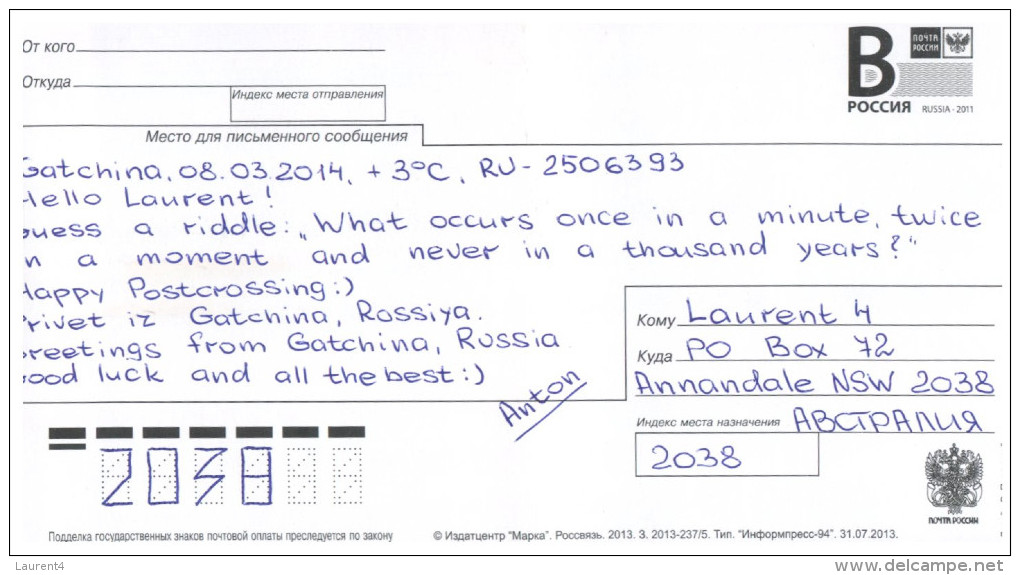 От кого
Откуда
Индекс места отправления
Место для письменного сообщения
В
ПОЧТА РОССИИ
РОССИЯ RUSSIA · 2011
Gatchina, 08.03.2014, +3°C, RU-2506393
Hello Laurent!
Guess a riddle: „What occurs once in a minute, twice
in a moment and never in a thousand years?"
Happy Postcrossing:)
Privet iz Gatchina, Rossiya.
Greetings from Gatchina, Russia.
Good luck and all the best:)
Anton
Кому Laurent 4
Куда PO Box 72
Annandale NSW 2038
Индекс места назначения АВСТРАЛИЯ
2038
2038
ПОЧТА РОССИИ
Подделка государственных знаков почтовой оплаты преследуется по закону
© Издатцентр "Марка". Россвязь. 2013. З. 2013-237/5. Тип. "Информпресс-94". 31.07.2013.
Laurent4
delcampe.net